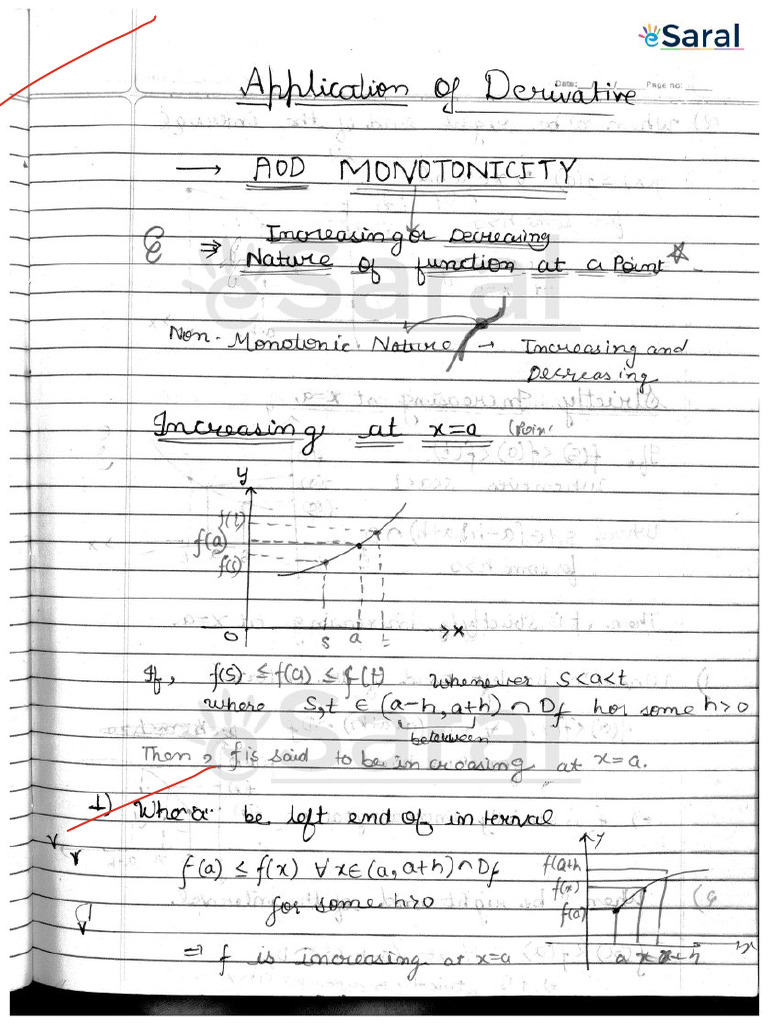 eSaral
Date: Page no:
Application of Derivative
→ AOD MONOTONICITY
⇒ Increasing or Decreasing
Nature of function at a Point
Non-Monotonic Nature → Increasing and
Decreasing
Increasing at x=a (Poin
y
f(t)
f(a)
f(s)
O s a t x
If, f(s) ≤ f(a) ≤ f(t) whenever s<a<t
where s,t ∈ (a-h, a+h) ∩ Df for some h>0
between
Then, f is said to be increasing at x=a.
1) When a be left end of interval
f(a) ≤ f(x) ∀ x∈(a, a+h)∩Df
for some h>0
⇒ f is increasing at x=a
y
f(a+h
f(x)
f(a)
a x a+h x
eSaral
eSaral